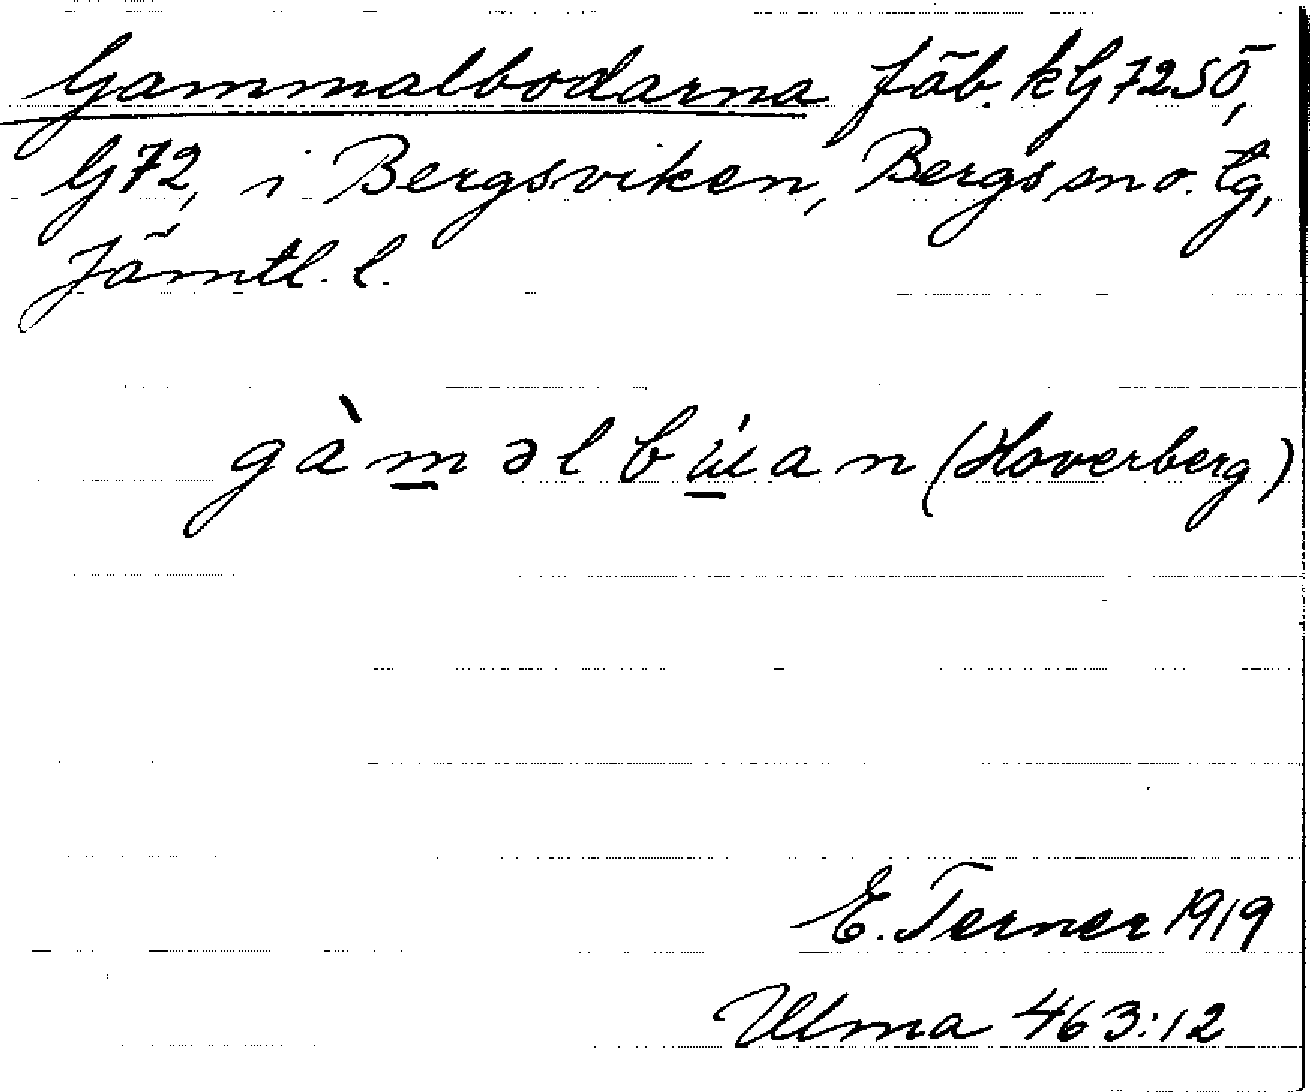 Gammalbodarna fäb. kG72SÖ,
G72, i Bergsviken, Bergs sn o. tg,
Jämtl. l.
gàməlb a n (Hoverberg)
E. Terner 1919
Ulma 463:12